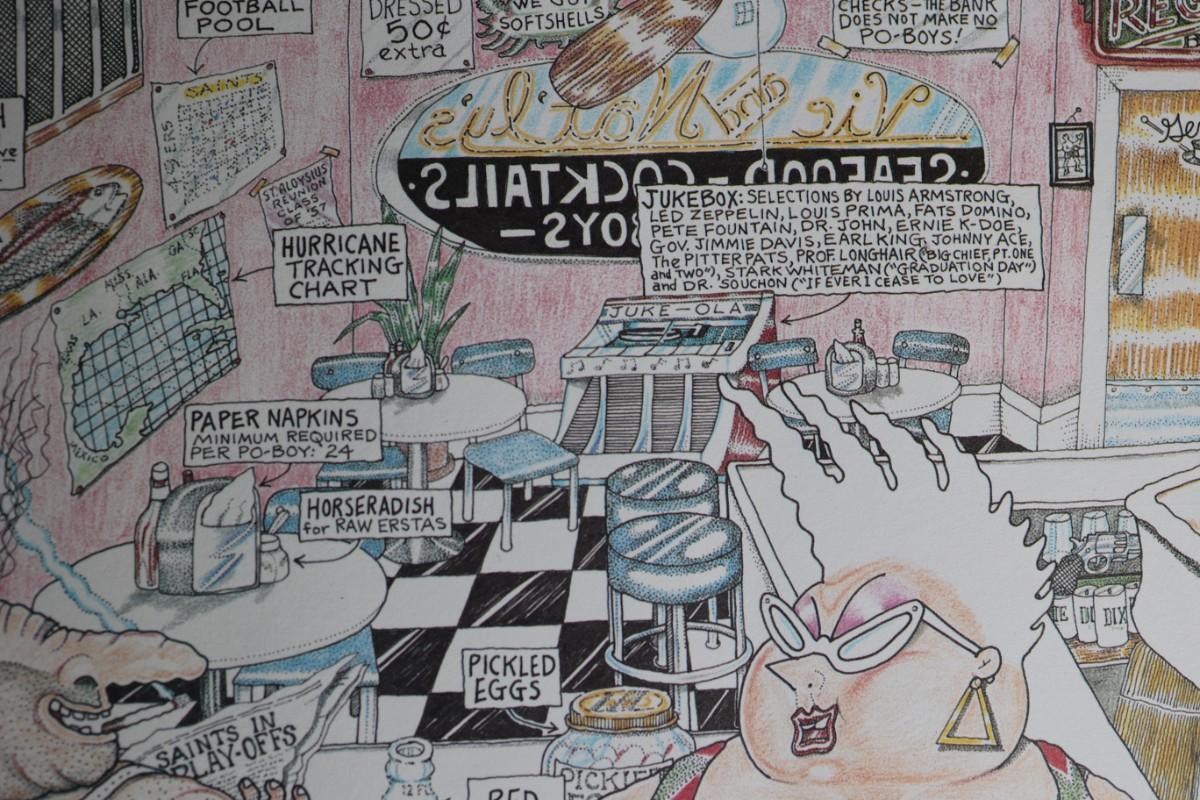 FOOTBALL
POOL
DRESSED
50¢
extra
WE GOT
SOFTSHELLS
CHECKS-THE BANK
DOES NOT MAKE NO
PO-BOYS!
SAINTS
49ERS
ST. ALOYSIUS
REUNION
CLASS
OF '57
Vic and Nat'ly's
SEAFOOD-COCKTAILS
BOYS-
HURRICANE
TRACKING
CHART
MISS. ALA. GA.
FLA.
LA.
MEXICO
JUKEBOX: SELECTIONS BY LOUIS ARMSTRONG,
LED ZEPPELIN, LOUIS PRIMA, FATS DOMINO,
PETE FOUNTAIN, DR. JOHN, ERNIE K-DOE,
GOV. JIMMIE DAVIS, EARL KING, JOHNNY ACE,
The PITTER PATS, PROF. LONGHAIR ("BIG CHIEF, PT. ONE
and TWO"), STARK WHITEMAN ("GRADUATION DAY")
and DR. SOUCHON ("IF EVER I CEASE TO LOVE")
JUKE-OLA
PAPER NAPKINS
MINIMUM REQUIRED
PER PO-BOY: 24
HORSERADISH
for RAW ERSTAS
PICKLED
EGGS
SAINTS IN
PLAY-OFFS
12 FL.
PICKLE
DIX